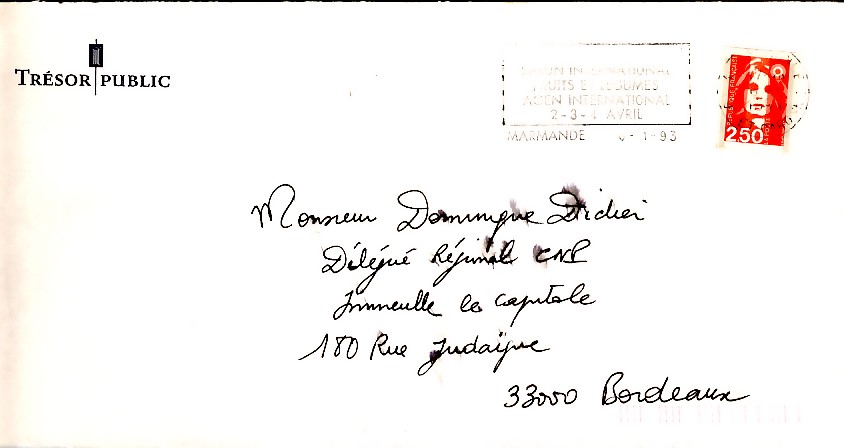 TRÉSOR PUBLIC
SALON INTERNATIONAL
FRUITS ET LEGUMES
AGEN INTERNATIONAL
2-3-4 AVRIL
MARMANDE -1-93
RÉPUBLIQUE FRANÇAISE
2,50
Monsieur Dominique Didier
Délégué Régional CNP
Immeuble la Capitole
180 Rue Judaïque
33000 Bordeaux